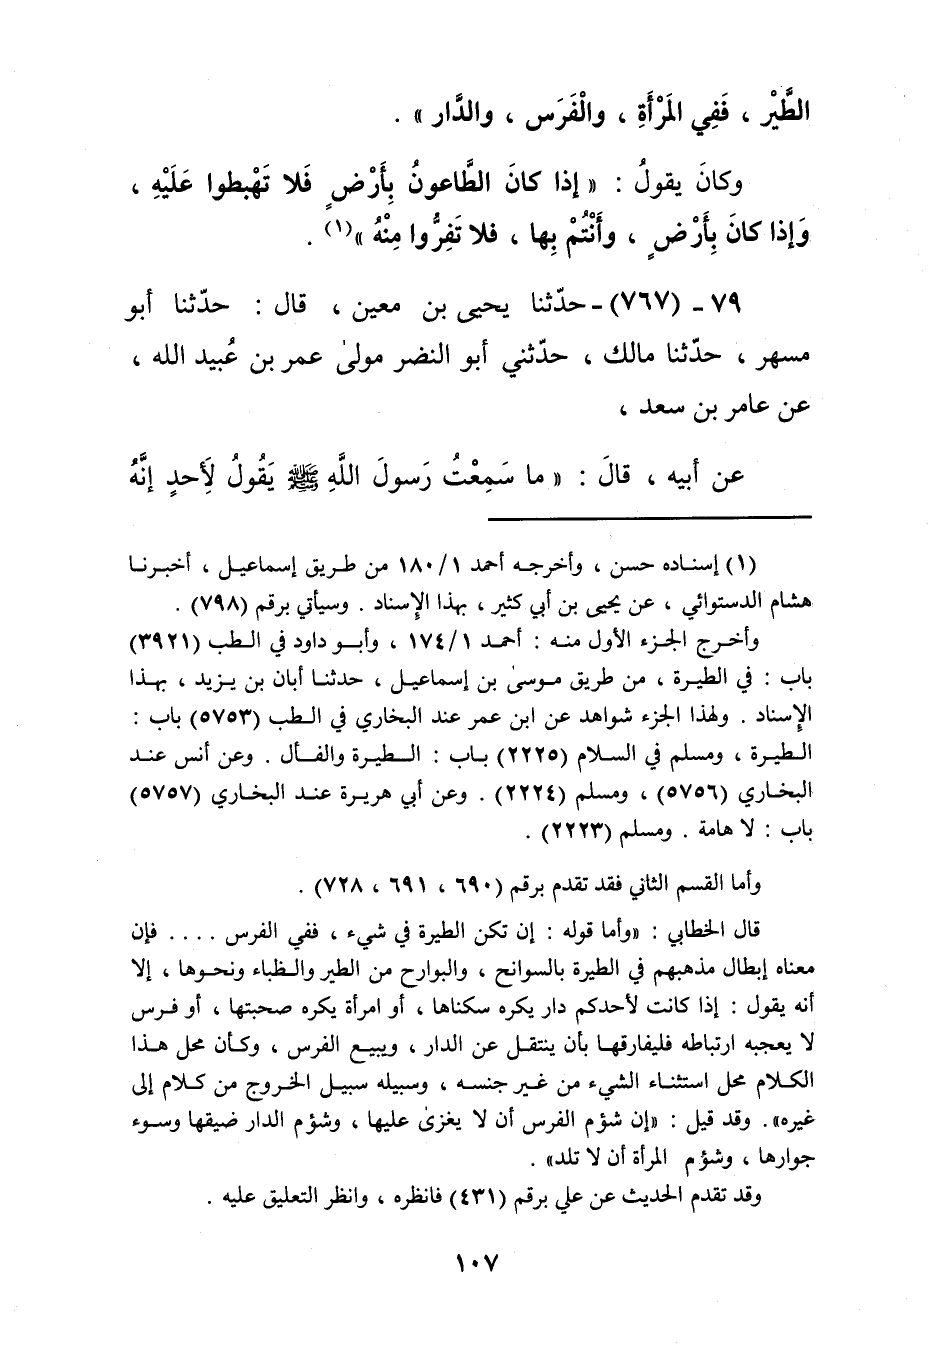 الطَّيْرِ ، فَفِي المَرْأَةِ ، والْفَرَس ، والدَّار » .
وكانَ يقولُ : « إذا كانَ الطَّاعونُ بِأَرْضٍ فَلا تَهْبِطوا عَلَيْهِ ،
وَإذا كانَ بِأَرْضٍ ، وأَنْتُمْ بِها ، فلا تَفِرُّوا مِنْهُ »(١) .
٧٩ ـ (٧٦٧) ـ حدّثنا يحيى بن معين ، قال : حدّثنا أبو
مسهر ، حدّثنا مالك ، حدّثني أبو النضر مولىٰ عمر بن عُبيد الله ،
عن عامر بن سعد ،
عن أبيه ، قالَ : « ما سَمِعْتُ رَسولَ اللَّهِ ﷺ يَقُولُ لِأَحدٍ إنَّهُ
(١) إسناده حسن ، وأخرجه أحمد ١/ ١٨٠ من طريق إسماعيل ، أخبرنا
هشام الدستوائي ، عن يحيى بن أبي كثير ، بهذا الإسناد . وسيأتي برقم (٧٩٨) .
وأخرج الجزء الأول منه : أحمد ١/ ١٧٤ ، وأبو داود في الطب (٣٩٢١)
باب : في الطيرة ، من طريق موسىٰ بن إسماعيل ، حدثنا أبان بن يزيد ، بهذا
الإسناد . ولهذا الجزء شواهد عن ابن عمر عند البخاري في الطب (٥٧٥٣) باب :
الطيرة ، ومسلم في السلام (٢٢٢٥) باب : الطيرة والفأل . وعن أنس عند
البخاري (٥٧٥٦) ، ومسلم (٢٢٢٤) . وعن أبي هريرة عند البخاري (٥٧٥٧)
باب : لا هامة . ومسلم (٢٢٢٣) .
وأما القسم الثاني فقد تقدم برقم (٦٩٠ ، ٦٩١ ، ٧٢٨) .
قال الخطابي : «وأما قوله : إن تكن الطيرة في شيء ، ففي الفرس .... فإن
معناه إبطال مذهبهم في الطيرة بالسوانح ، والبوارح من الطير والظباء ونحوها ، إلا
أنه يقول : إذا كانت لأحدكم دار يكره سكناها ، أو امرأة يكره صحبتها ، أو فرس
لا يعجبه ارتباطه فليفارقها بأن ينتقل عن الدار ، ويبيع الفرس ، وكأن محل هذا
الكلام محل استثناء الشيء من غير جنسه ، وسبيله سبيل الخروج من كلام إلى
غيره» . وقد قيل : «إن شؤم الفرس أن لا يغزىٰ عليها ، وشؤم الدار ضيقها وسوء
جوارها ، وشؤم المرأة أن لا تلد» .
وقد تقدم الحديث عن علي برقم (٤٣١) فانظره ، وانظر التعليق عليه .
١٠٧